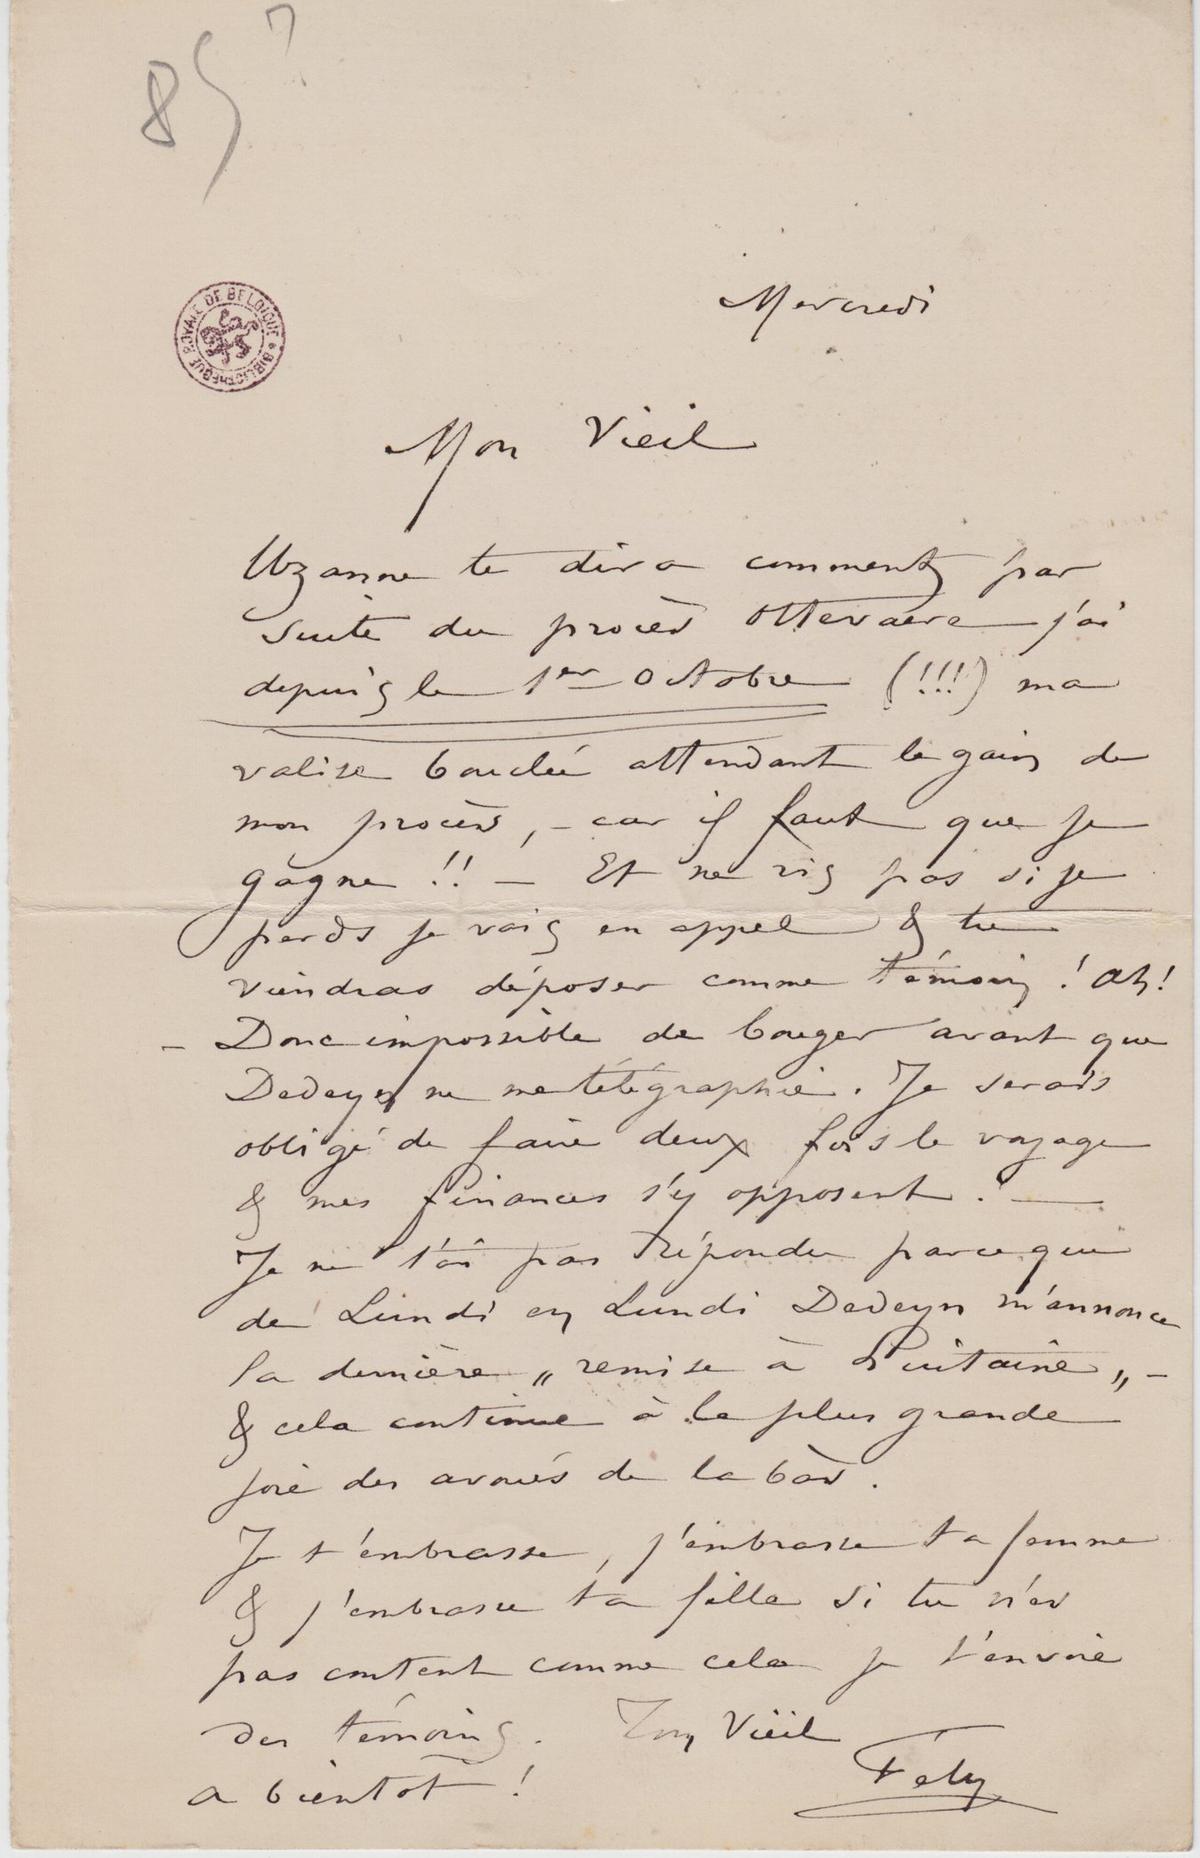 85 ?
Mercredi
BIBLIOTHEQUE ROYALE DE BELGIQUE
Mon Vieil
Uzanne te dira comment, par
suite du procès Ottevaere j'ai
depuis le 1er Octobre (!!!) ma
valise bouclée attendant le gain de
mon procès, – car il faut que je
gagne !! – Et ne ris pas si je
perds je vais en appel & tu
viendras déposer comme témoin ! Ah!
– Donc impossible de bouger avant que
Dedeyn ne me télégraphie. Je serais
obligé de faire deux fois le voyage
& mes finances s'y opposent. –
Je ne t'ai pas répondu parce que
de Lundi en Lundi Dedeyn m'annonce
la dernière „ remise à huitaine „ –
& cela continue à la plus grande
joie des avoués de la bas.
Je t'embrasse, j'embrasse ta femme
& j'embrasse ta fille si tu n'es
pas content comme cela je t'envoie
des témoins. Ton Vieil
Fély
a bientot !